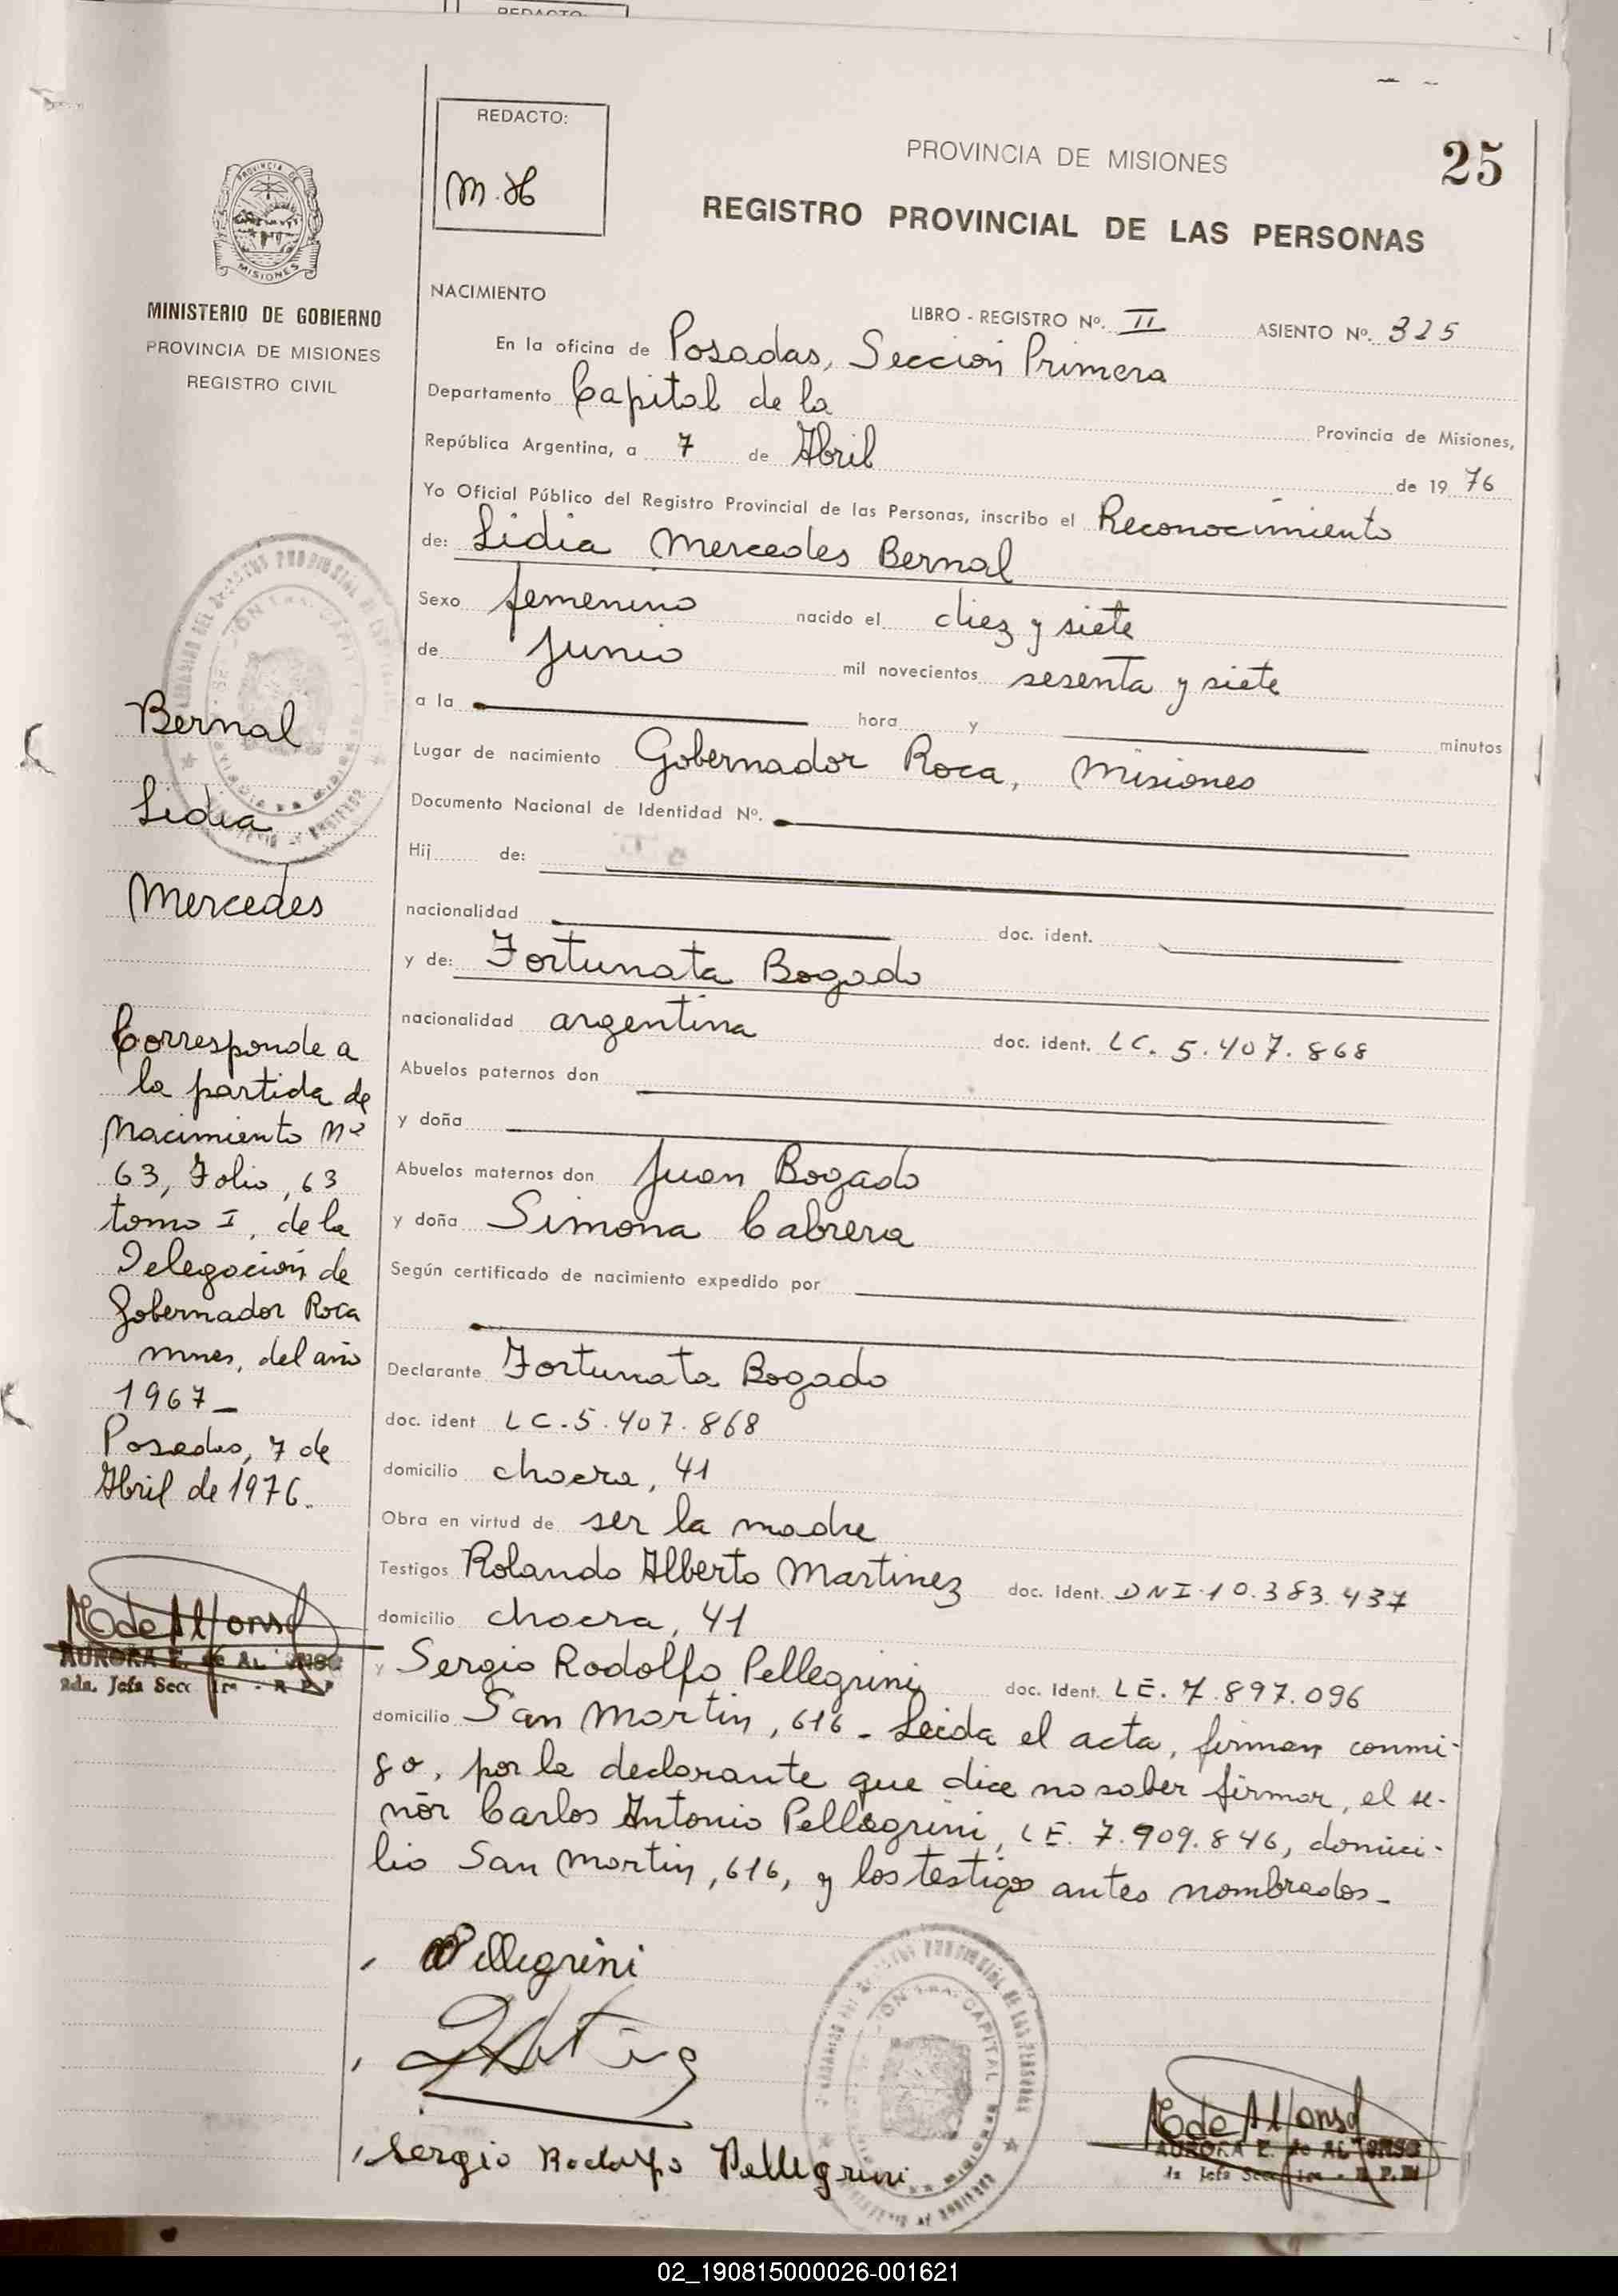 REDACTO:
REDACTO:
M.H
PROVINCIA DE MISIONES
25
REGISTRO PROVINCIAL DE LAS PERSONAS
MISIONES
MINISTERIO DE GOBIERNO
PROVINCIA DE MISIONES
REGISTRO CIVIL
NACIMIENTO
LIBRO - REGISTRO Nº. II ASIENTO Nº. 325
En la oficina de Posadas, Sección Primera
Departamento Capital de la Provincia de Misiones,
República Argentina, a 7 de Abril de 19 76
Yo Oficial Público del Registro Provincial de las Personas, inscribo el Reconocimiento
de: Lidia Mercedes Bernal
Sexo femenino nacido el diez y siete
de Junio mil novecientos sesenta y siete
a la hora y minutos
Lugar de nacimiento Gobernador Roca, Misiones
Documento Nacional de Identidad Nº.
Hij de:
nacionalidad doc. ident.
y de: Fortunata Bogado
nacionalidad argentina doc. ident. LC. 5.407.868
Abuelos paternos don
y doña
Abuelos maternos don Juan Bogado
y doña Simona Cabrera
Según certificado de nacimiento expedido por
Declarante Fortunata Bogado
doc. ident LC-5.407.868
domicilio chacra, 41
Obra en virtud de ser la madre
Testigos Rolando Alberto Martinez doc. Ident. DNI-10.383.437
domicilio chacra, 41
y Sergio Rodolfo Pellegrini doc. Ident. LE. 7.897.096
domicilio San Martin, 616 - Leida el acta, firman conmi-
go, por la declarante que dice no saber firmar, el se-
ñor Carlos Antonio Pellegrini, LE. 7.909.846, domici-
lio San Martin, 616, y los testigos antes nombrados-
Bernal
Lidia
Mercedes
Corresponde a
la partida de
Nacimiento Nº
63, Folio, 63
tomo I, de la
Delegación de
Gobernador Roca
Mnes, del año
1967-
Posadas, 7 de
Abril de 1976.
E de Alfonso
AURORA E. de ALFONSO
Jefa Secc 1ra - R P P
Pellegrini
Sergio Rodolfo Pellegrini
CAPITAL
E de Alfonso
AURORA E. de ALFONSO
Jefa Secc 1ra - R P P
02_190815000026-001621